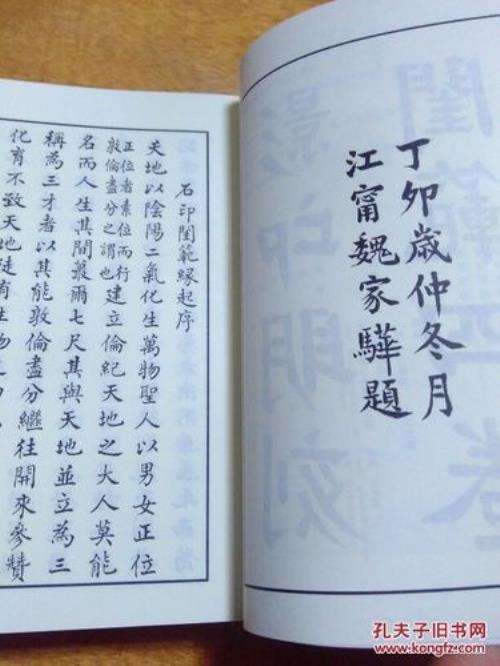 丁卯歲仲冬月
江甯魏家驊題
石印閨範緣起序
天地以陰陽二氣化生萬物聖人以男女正位
正位者素位而行
敦倫盡分之謂也
建立倫紀天地之大人莫能
名而人生其間爾七尺其與天地並立為三
稱為三才者以其能敦倫盡分繼往開來參贊
化育不致天地徒有生物
孔夫子旧书网
www.kongfz.com